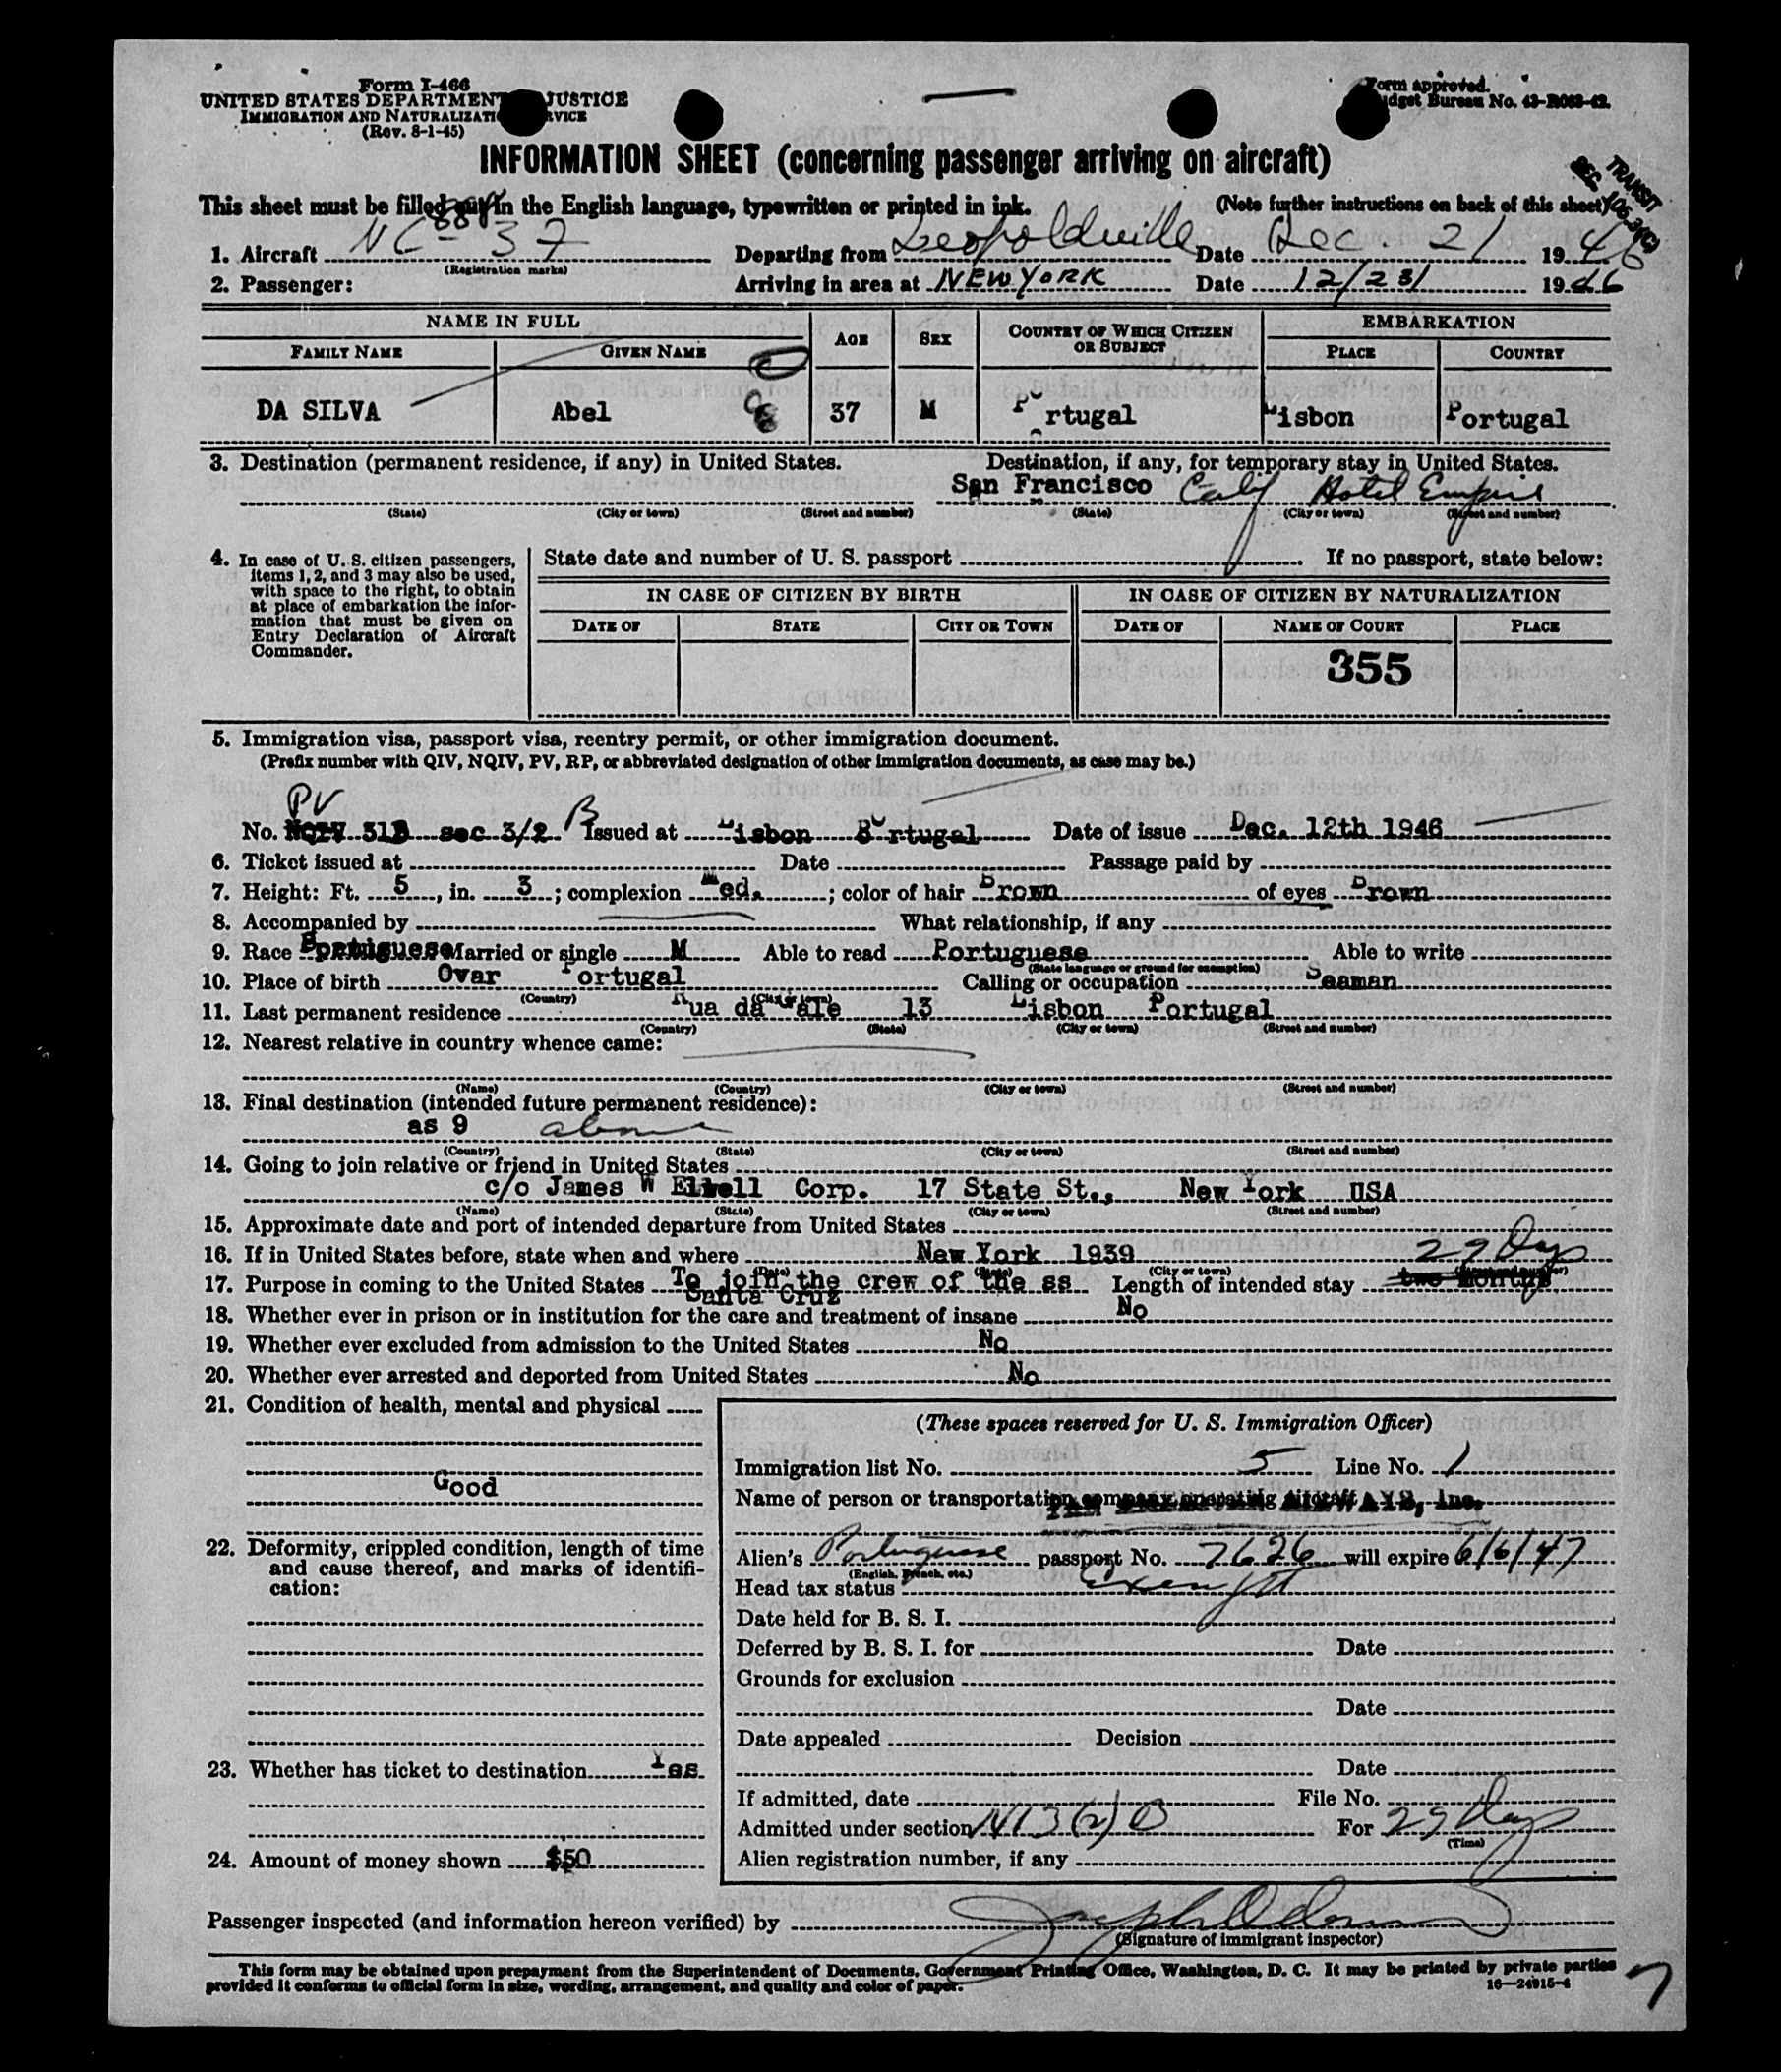 Form I-466
UNITED STATES DEPARTMENT JUSTICE
IMMIGRATION AND NATURALIZATI RVICE
(Rev. 8-1-45)
Form approved.
dget Bureau No. 43-R063-42.
INFORMATION SHEET (concerning passenger arriving on aircraft)
TRANSIT
SEC.
This sheet must be filled out in the English language, typewritten or printed in ink. (Note further instructions on back of this sheet)
1. Aircraft NC- 888 37 Departing from Leopoldville Date Dec. 21 1946
(Registration marks)
2. Passenger: Arriving in area at NEW YORK Date 12/23/ 1946
NAME IN FULL AGE SEX COUNTRY OF WHICH CITIZEN OR SUBJECT EMBARKATION
FAMILY NAME GIVEN NAME PLACE COUNTRY
DA SILVA Abel 37 M Portugal Lisbon Portugal
3. Destination (permanent residence, if any) in United States. Destination, if any, for temporary stay in United States.
San Francisco Calif Hotel Empire
(State) (City or town) (Street and number) (State) (City or town) (Street and number)
4. In case of U. S. citizen passengers, items 1, 2, and 3 may also be used, with space to the right, to obtain at place of embarkation the information that must be given on Entry Declaration of Aircraft Commander.
State date and number of U. S. passport If no passport, state below:
IN CASE OF CITIZEN BY BIRTH IN CASE OF CITIZEN BY NATURALIZATION
DATE OF STATE CITY OR TOWN DATE OF NAME OF COURT PLACE
355
5. Immigration visa, passport visa, reentry permit, or other immigration document.
(Prefix number with QIV, NQIV, PV, RP, or abbreviated designation of other immigration documents, as case may be.)
PV
No. NQIV 313 sec 3/2 B Issued at Lisbon Portugal Date of issue Dec. 12th 1946
6. Ticket issued at Date Passage paid by
7. Height: Ft. 5, in. 3; complexion Med.; color of hair Brown of eyes Brown
8. Accompanied by What relationship, if any
9. Race Portuguese Married or single M Able to read Portuguese Able to write
(State language or ground for exemption)
10. Place of birth Ovar Portugal Calling or occupation Seaman
(Country) (City or town)
11. Last permanent residence Rua da 13 Lisbon Portugal
(Country) (State) (City or town) (Street and number)
12. Nearest relative in country whence came:
(Name) (Country) (City or town) (Street and number)
13. Final destination (intended future permanent residence):
as 9 above
(Country) (State) (City or town) (Street and number)
14. Going to join relative or friend in United States
c/o James W Elwell Corp. 17 State St., New York USA
(Name) (State) (City or town) (Street and number)
15. Approximate date and port of intended departure from United States
16. If in United States before, state when and where New York 1939 29 Days
(Date) (State) (City or town) (Street and number)
17. Purpose in coming to the United States To join the crew of the ss Length of intended stay two months
Santa Cruz
18. Whether ever in prison or in institution for the care and treatment of insane No
19. Whether ever excluded from admission to the United States No
20. Whether ever arrested and deported from United States No
21. Condition of health, mental and physical
Good
22. Deformity, crippled condition, length of time and cause thereof, and marks of identification:
23. Whether has ticket to destination Yes
24. Amount of money shown $50
(These spaces reserved for U. S. Immigration Officer)
Immigration list No. 5 Line No. 1
Name of person or transportation company operating aircraft AIRWAYS, Inc.
Alien's Portuguese passport No. 7626 will expire 6/6/47
(English, French, etc.)
Head tax status Exempt
Date held for B. S. I.
Deferred by B. S. I. for Date
Grounds for exclusion
Date
Date appealed Decision
Date
If admitted, date File No.
Admitted under section 3(2) B For 29 Days
(Time)
Alien registration number, if any
Passenger inspected (and information hereon verified) by
(Signature of immigrant inspector)
This form may be obtained upon prepayment from the Superintendent of Documents, Government Printing Office, Washington, D. C. It may be printed by private parties
provided it conforms to official form in size, wording, arrangement, and quality and color of paper. 16—24915-4
7